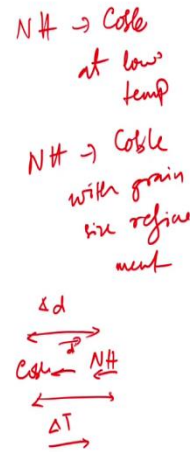 NH → Coble
at low
temp
NH → Coble
with grain
size refine
ment
Δd
Coble ← NH
ΔT